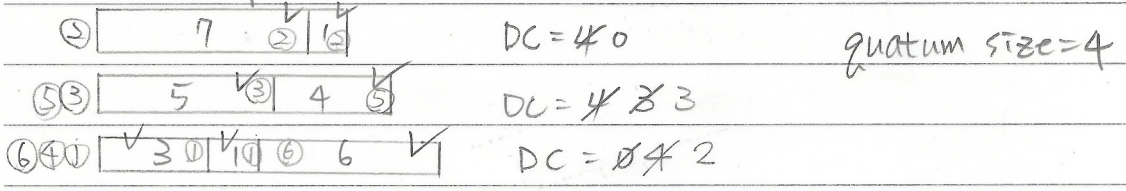 ② 7 ② 1 ② DC = 4 0 quatum size = 4
⑤③ 5 ③ 4 ⑤ DC = 4 3 3
⑥④① 3 ① 1 ① ⑥ 6 DC = 0 4 2